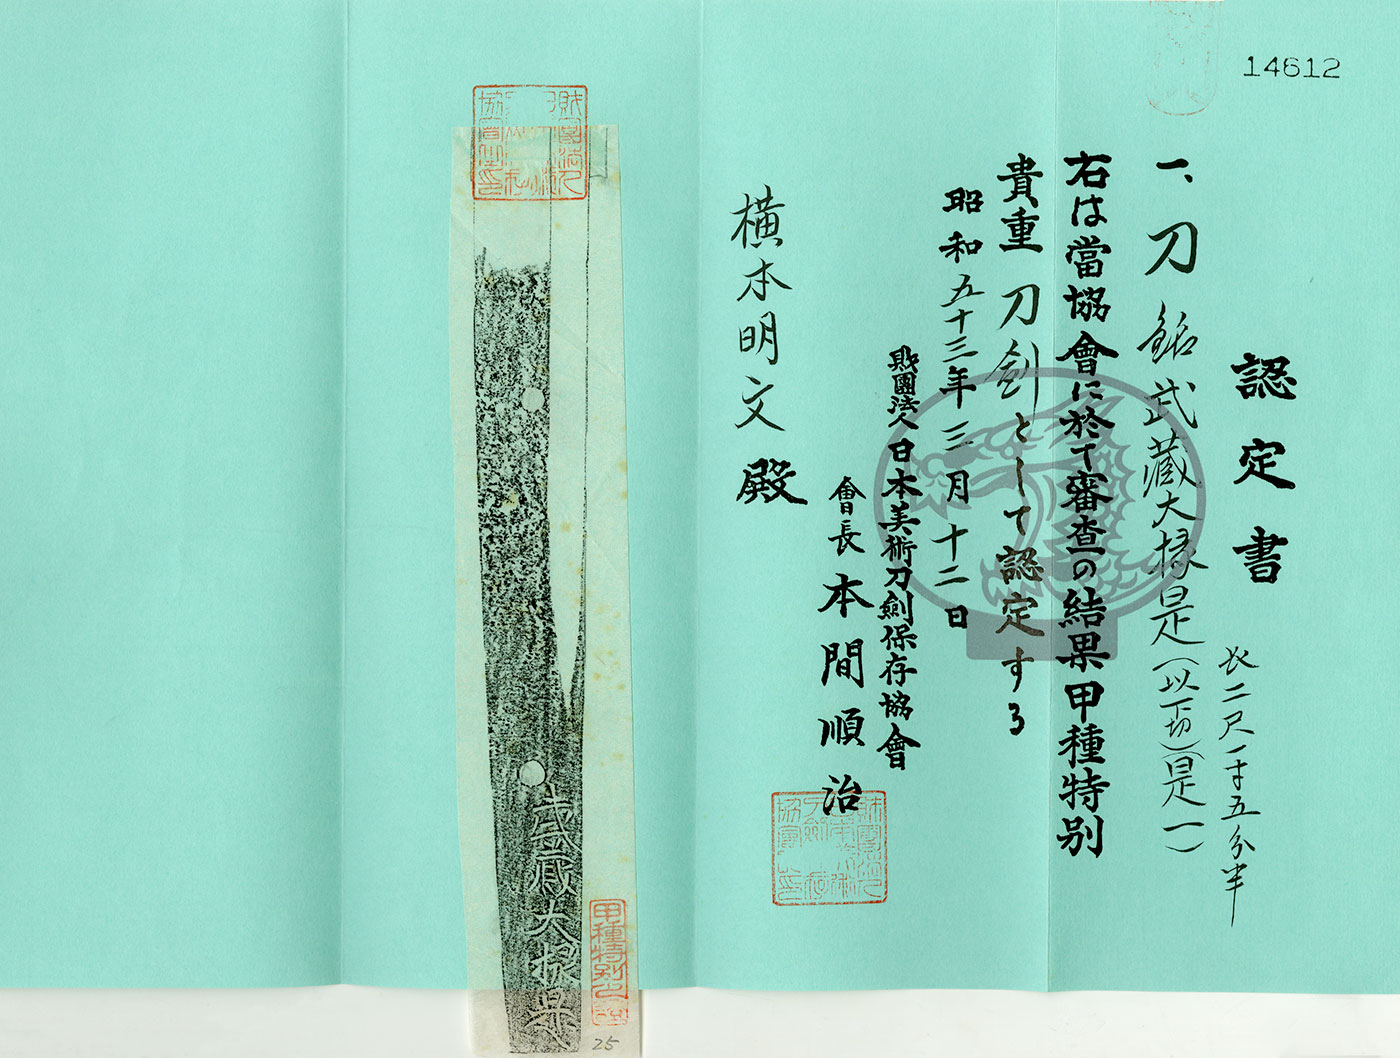 14612
認定書
一、刀 銘 武蔵大掾是(以下切)(是一)
長二尺一寸五分半
右は當協會に於て審査の結果甲種特別
貴重刀劍として認定する
昭和五十三年三月十二日
財團法人日本美術刀劍保存協會
會長 本間順治
横本明文殿
武蔵大掾是
甲種特別
25